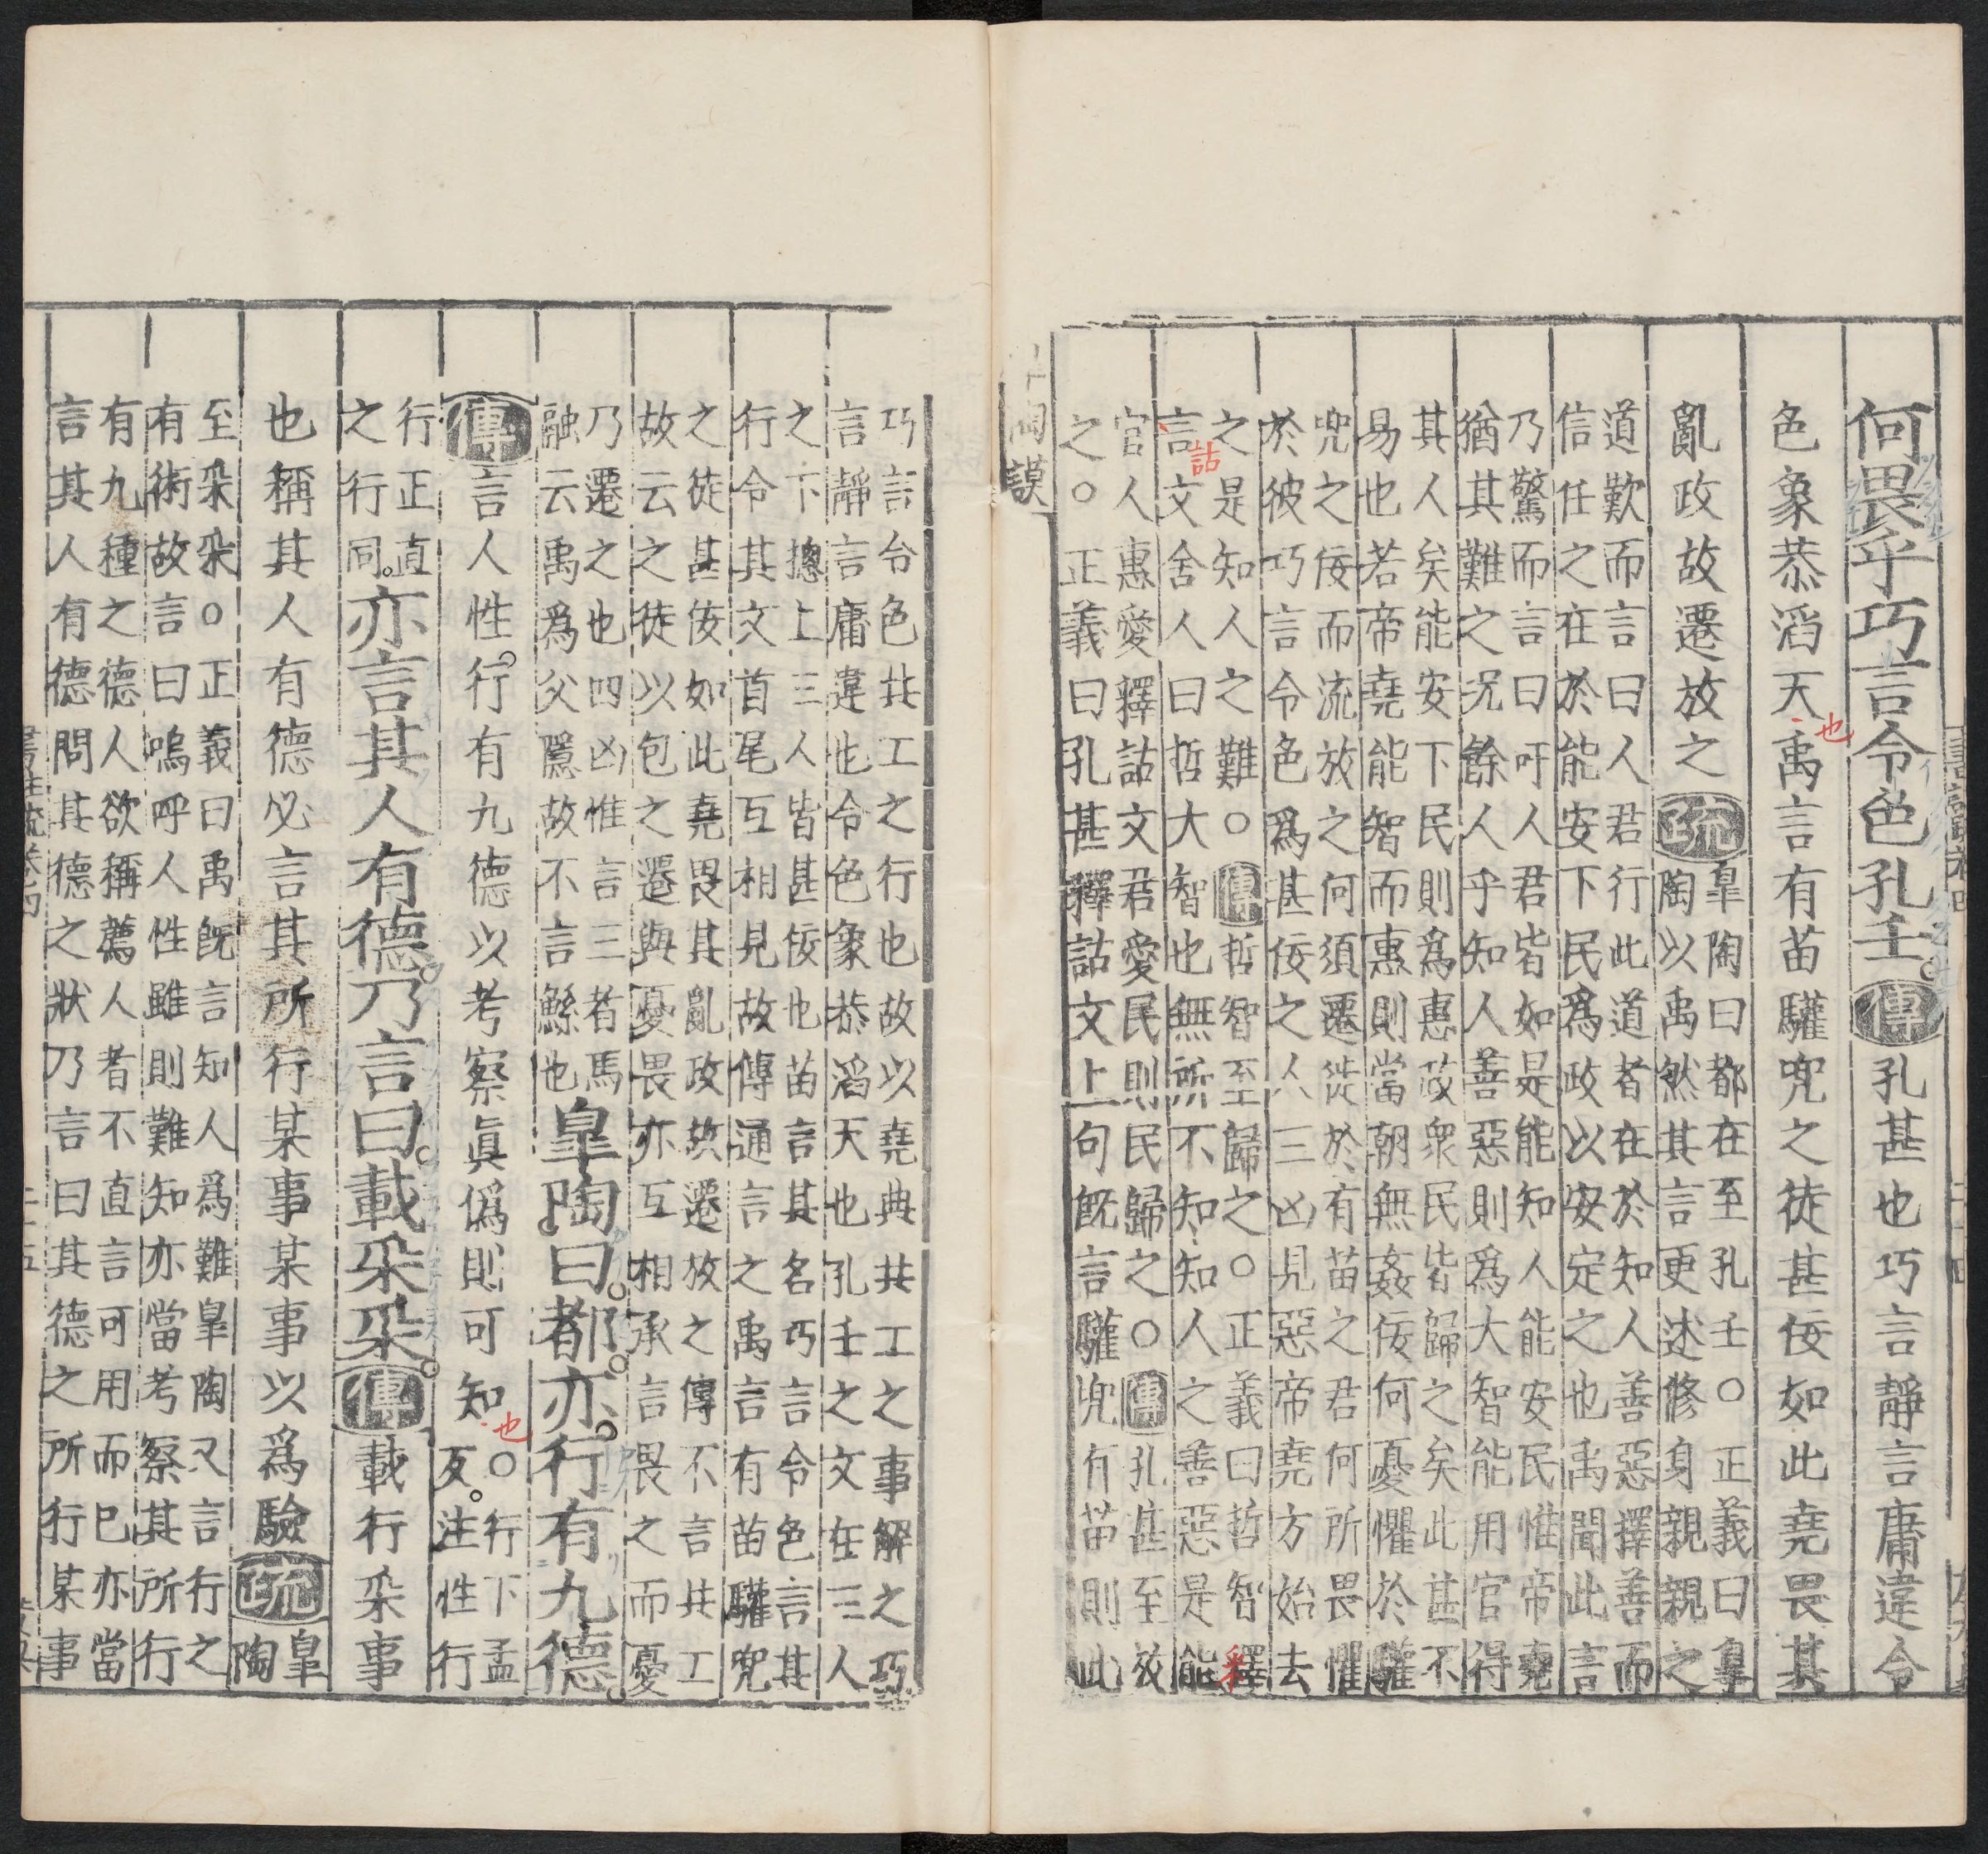 何畏乎巧言令色孔壬傳孔甚也巧言靜言庸違令
色象恭滔天也禹言有苗驩兜之徒甚佞如此堯畏其
亂政故遷放之疏
皐陶曰都在至孔壬○正義曰皐
陶以禹然其言更述修身親親之
道歎而言曰人君行此道者在於知人善惡擇善而
信任之在於能安下民爲政以安定之也禹聞此言
乃驚而言曰吁人君皆如是能知人能安民惟帝堯
猶其難之況餘人乎知人善惡則爲大智能用官得
其人矣能安下民則爲惠政衆民皆歸之矣此甚不
易也若帝堯能智而惠則當朝無姦佞何憂懼於驩
兜之佞而流放之何須遷徙於有苗之君何所畏懼
於彼巧言令色爲甚佞之人三凶見惡帝堯方始去
之是知人之難○傳哲智至歸之○正義曰哲智釋
釆
言文舍人曰哲大智也無所不知知人之善惡是能
詁
官人惠愛釋詁文君愛民則民歸之○傳孔甚至放
之○正義曰孔甚釋詁文上句既言驩兜有苗則此
陶謨
巧言令色共工之行也故以堯典共工之事解之巧
言靜言庸違也令色象恭滔天也孔壬之文在三人
之下摠上三人皆甚佞也苗言其名巧言令色言其
行令其文首尾互相見故傳通言之禹言有苗驩兜
之徒甚佞如此堯畏其亂政故遷放之傳不言共工
故云之徒以包之遷與憂畏亦互相承言畏之而憂
乃遷之也四凶惟言三者馬
融云禹爲父隱故不言鯀也
皐陶曰都亦行有九德
傳言人性行有九德以考察眞僞則可知也
○行下孟
反注性行
行正直
之行同
亦言其人有德乃言曰載采采傳載行采事
也稱其人有德必言其所行某事某事以爲驗疏
皐
陶
至采采○正義曰禹既言知人爲難皐陶又言行之
有術故言曰嗚呼人性雖則難知亦當考察其所行
有九種之德人欲稱薦人者不直言可用而已亦當
言其人有德問其德之狀乃言曰其德之所行某事